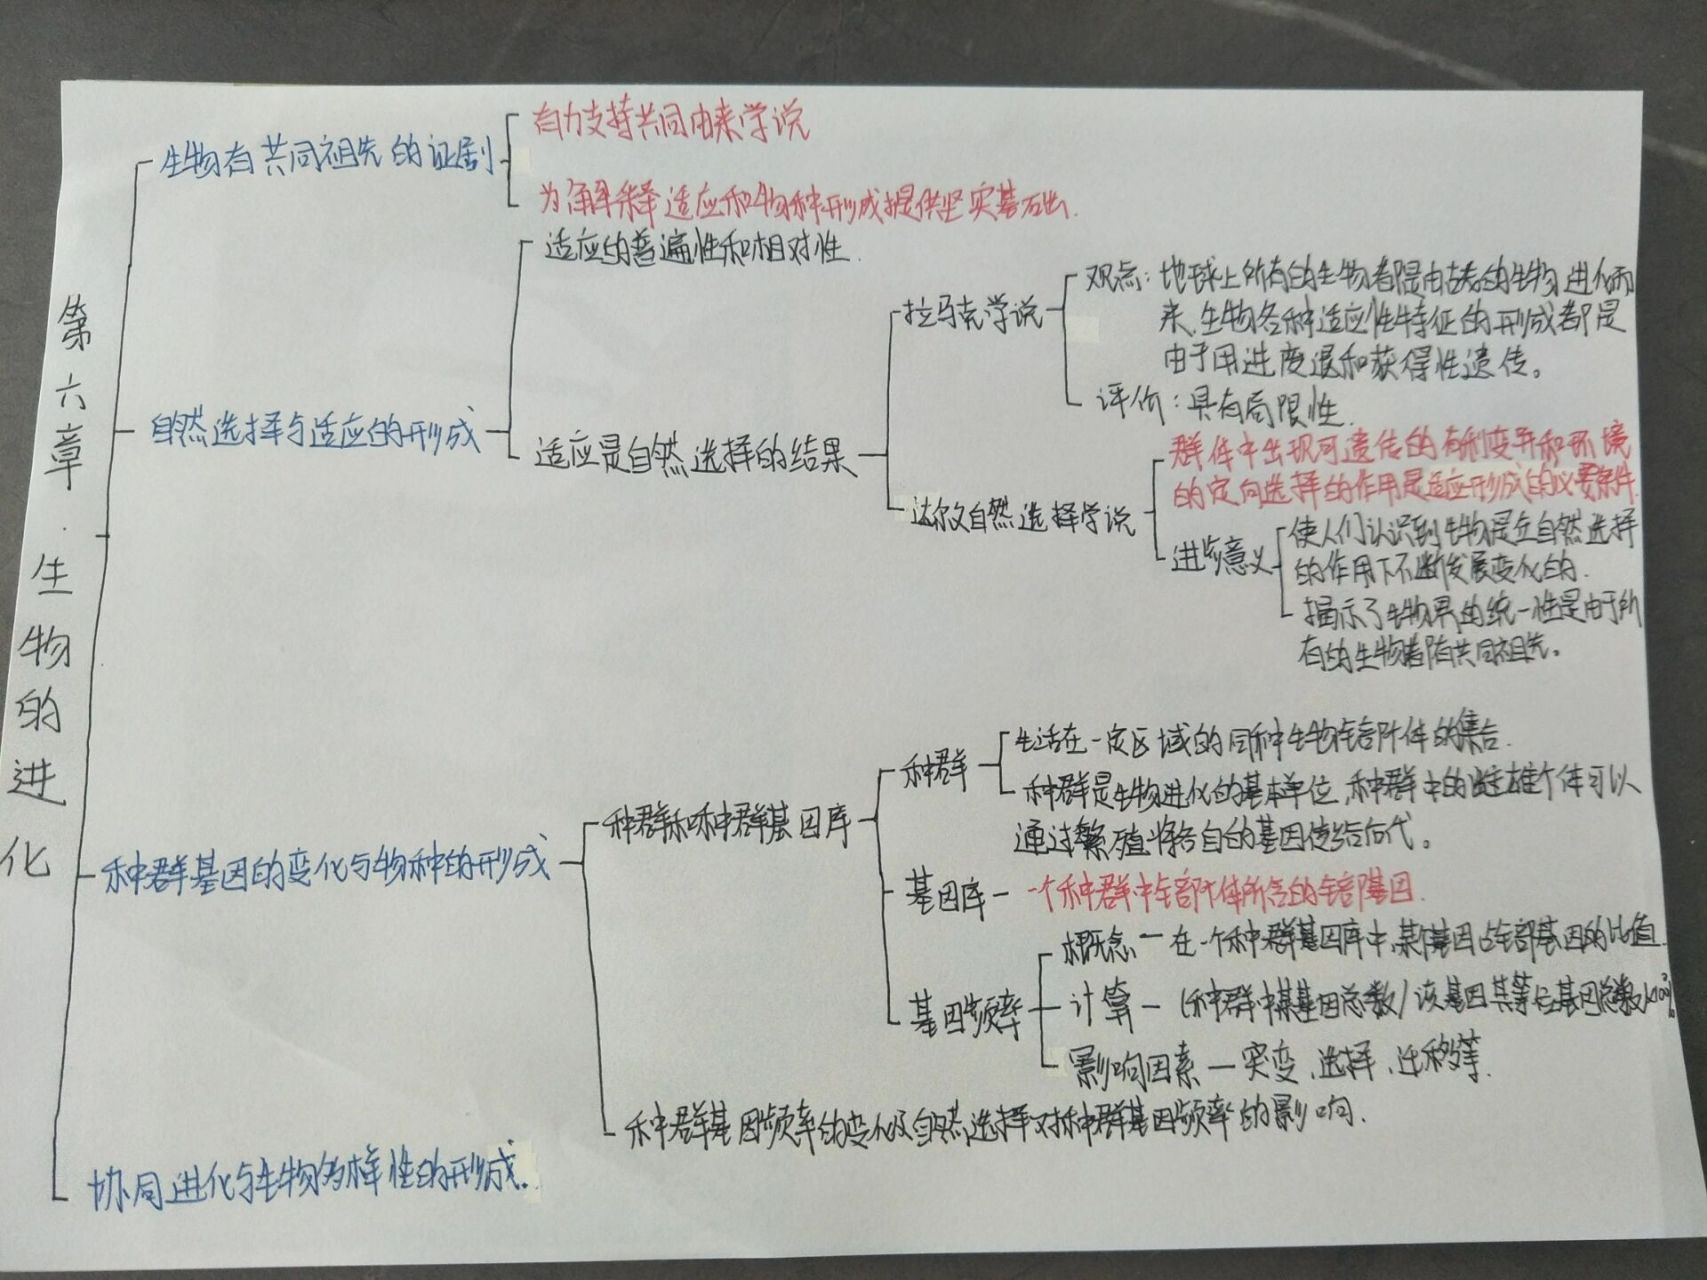 第六章·生物的进化
生物有共同祖先的证剧
有力支持共同由来学说
为解释适应和物种形成提供坚实基石出.
自然选择与适应的形成
适应的普遍性和相对性.
适应是自然选择的结果
拉马克学说
观点:地球上所有的生物都是由古老的生物进化而
来.生物各种适应性特征的形成都是
由于用进废退和获得性遗传。
评价:具有局限性.
达尔文自然选择学说
群体中出现可遗传的有利变异和环境
的定向选择的作用是适应形成的必要条件.
进步意义
使人们认识到生物是在自然选择
的作用下不断发展变化的.
揭示了生物界的统一性是由于所
有的生物都有共同祖先。
种群基因的变化与物种的形成
种群和种群基因库
种群
生活在一定区域的同种生物全部个体的集合.
种群是生物进化的基本单位,种群中的雌雄个体可以
通过繁殖将各自的基因传给后代。
基因库 — 一个种群中全部个体所含的全部基因.
基因频率
概念 — 在一个种群基因库中,某个基因占全部基因的比值.
计算 — (种群中某基因总数/该基因其等位基因总数)×100%
影响因素 — 突变、选择、迁移等.
种群基因频率的变化及自然选择对种群基因频率的影响.
协同进化与生物多样性的形成.